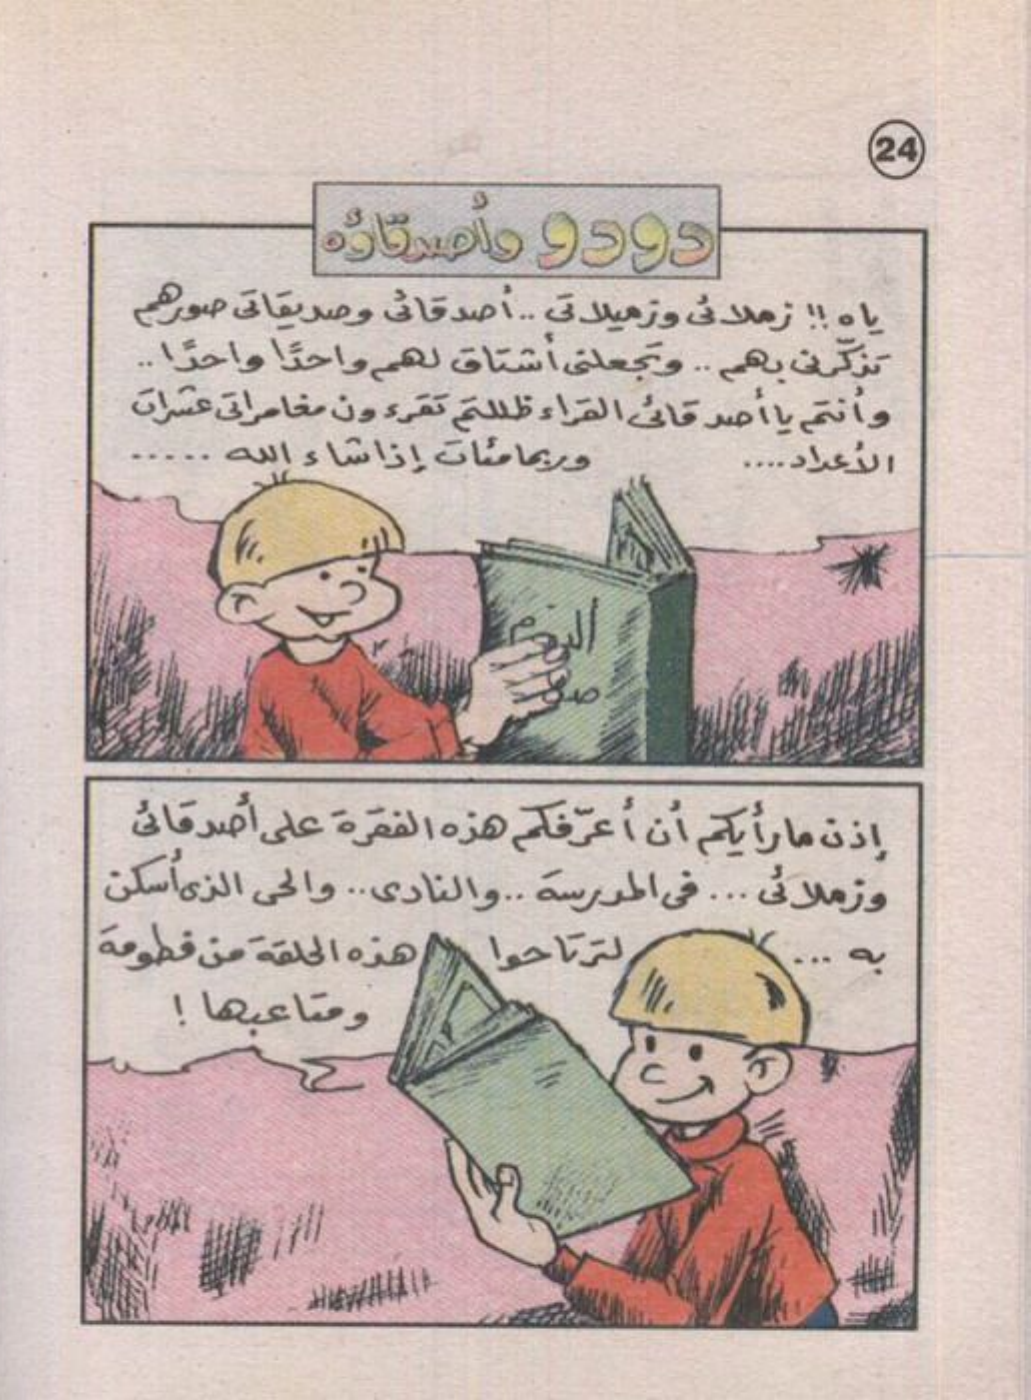 24
دودو وأصدقاؤه
ياه !! زملائى وزميلاتى .. أصدقائى وصديقاتى صورهم
تذكّرنى بهم .. وتجعلنى أشتاق لهم واحدًا واحدًا ..
وأنتم يا أصدقائى القراء ظللتم تقرءون مغامراتى عشرات
الأعداد .... وربما مئات إذا شاء الله .....
ألبوم
صور
إذن ما رأيكم أن أعرّفكم هذه الفقرة على أصدقائى
وزملائى ... فى المدرسة .. والنادى .. والحى الذى أسكن
به ... لترتاحوا هذه الحلقة من فطومة
ومتاعبها !